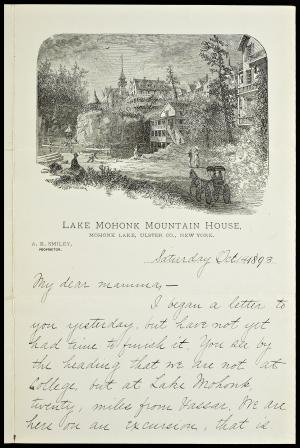 LAKE MOHONK MOUNTAIN HOUSE,
MOHONK LAKE, ULSTER CO., NEW YORK.
A. K. SMILEY,
PROPRIETOR.
Saturday Oct. 1893
My dear mamma,—
I began a letter to
you yesterday, but have not yet
had time to finish it. You see by
the heading that we are not at
College, but at Lake Mohonk,
twenty, miles from Vassar. We are
here on an excursion, that is